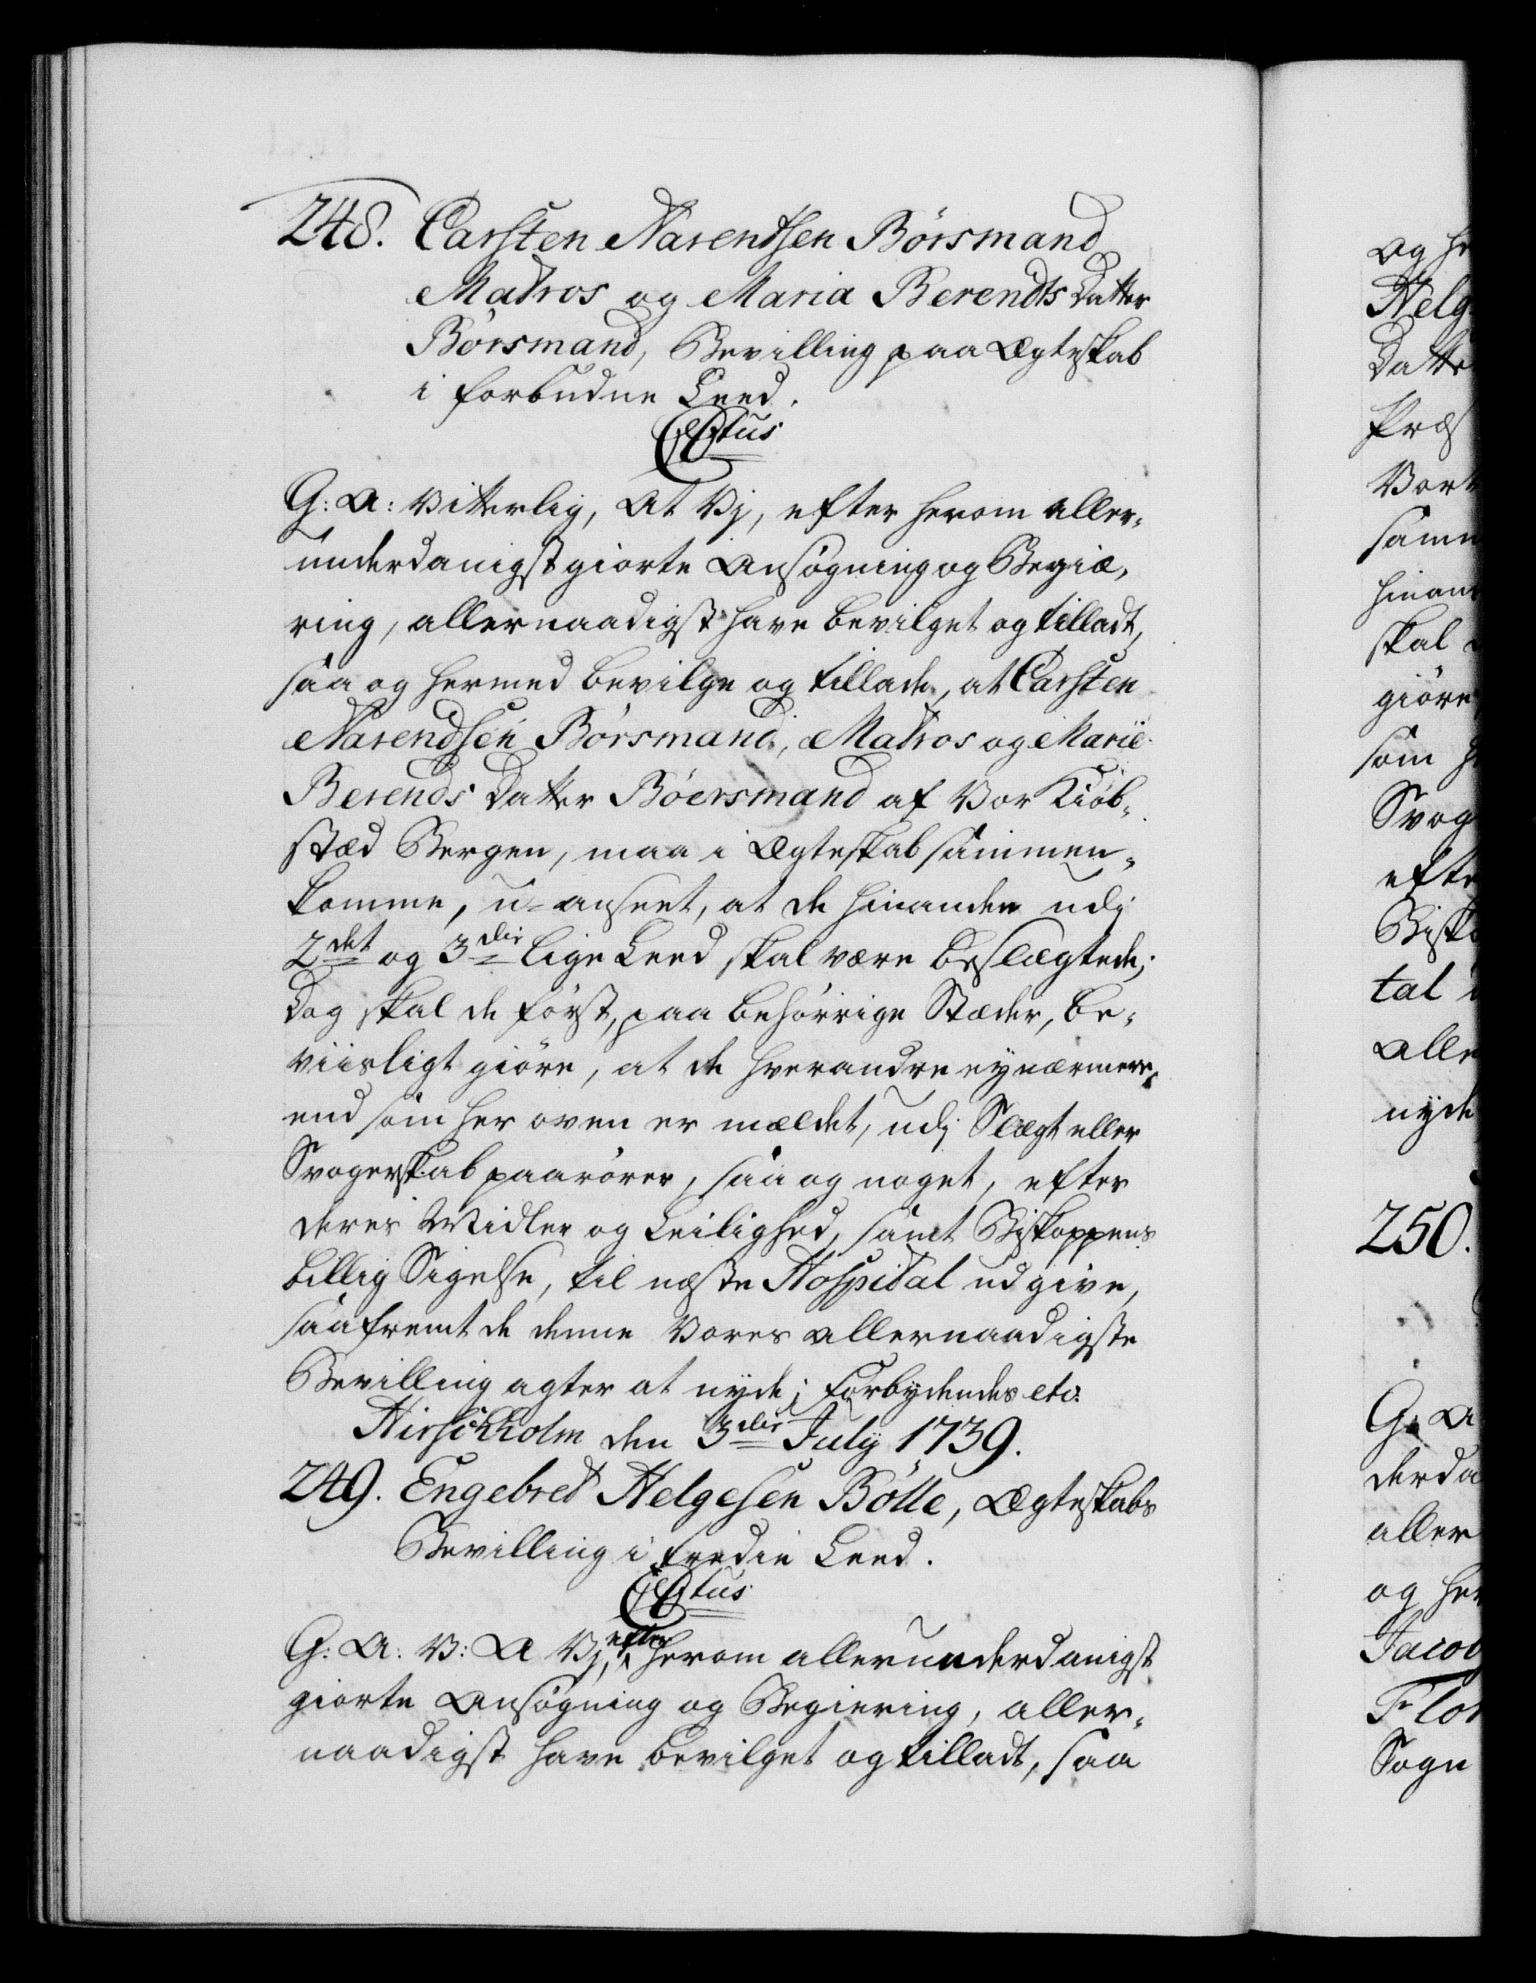 248. Carsten Narendsen Børsmand
Matros og Maria Berendts Datter
Børsmand, Bevilling paa Ægteskab
i forbudne Leed.
C6tus
G: A: Vitterlig, At Vj, efter herom aller-
underdanigst giorte Ansøgning og Begiæ-
ring, allernaadigst have bevilget og tilladt,
saa og hermed bevilge og tillade, at Carsten
Narendsen Børsmand, Matros og Marie
Berends Datter Böersmand af Vor Kiøb-
stæd Bergen, maa i Ægteskab sammen-
komme, u-anseet, at de hinanden udj
2det og 3die lige Leed skal være beslægtede;
Dog skal de først, paa behørrige Stæder, be-
viisligt giøre, at de hverandre ey nærmere,
end som her oven er mældet, udj Slægt eller
Svogerskab paarører, saa og noget, efter
deres Midler og Leilighed, samt Biskoppens
billig Sigelse, til næste Hospital udgive,
saafremt de denne Vores allernaadigste
Bevilling agter at nyde; Forbydendes etc.
Hirschholm den 3die July 1739.
249. Engebret Helgesen Bølle, Ægteskabs
Bevilling i tredie Leed.
C6tus
G: A: V: A Vj, efter herom allerunderdanigst
giorte Ansøgning og Begiering, aller-
naadigst have bevilget og tilladt, saa
og he
Helg
Datte
Præs
Vort
samm
hinan
skal
giøre
som h
Svog
efte
Bisko
tal
alle
nyde
250.
G: A
derda
aller
og her
Jacob
Flor
Sogn